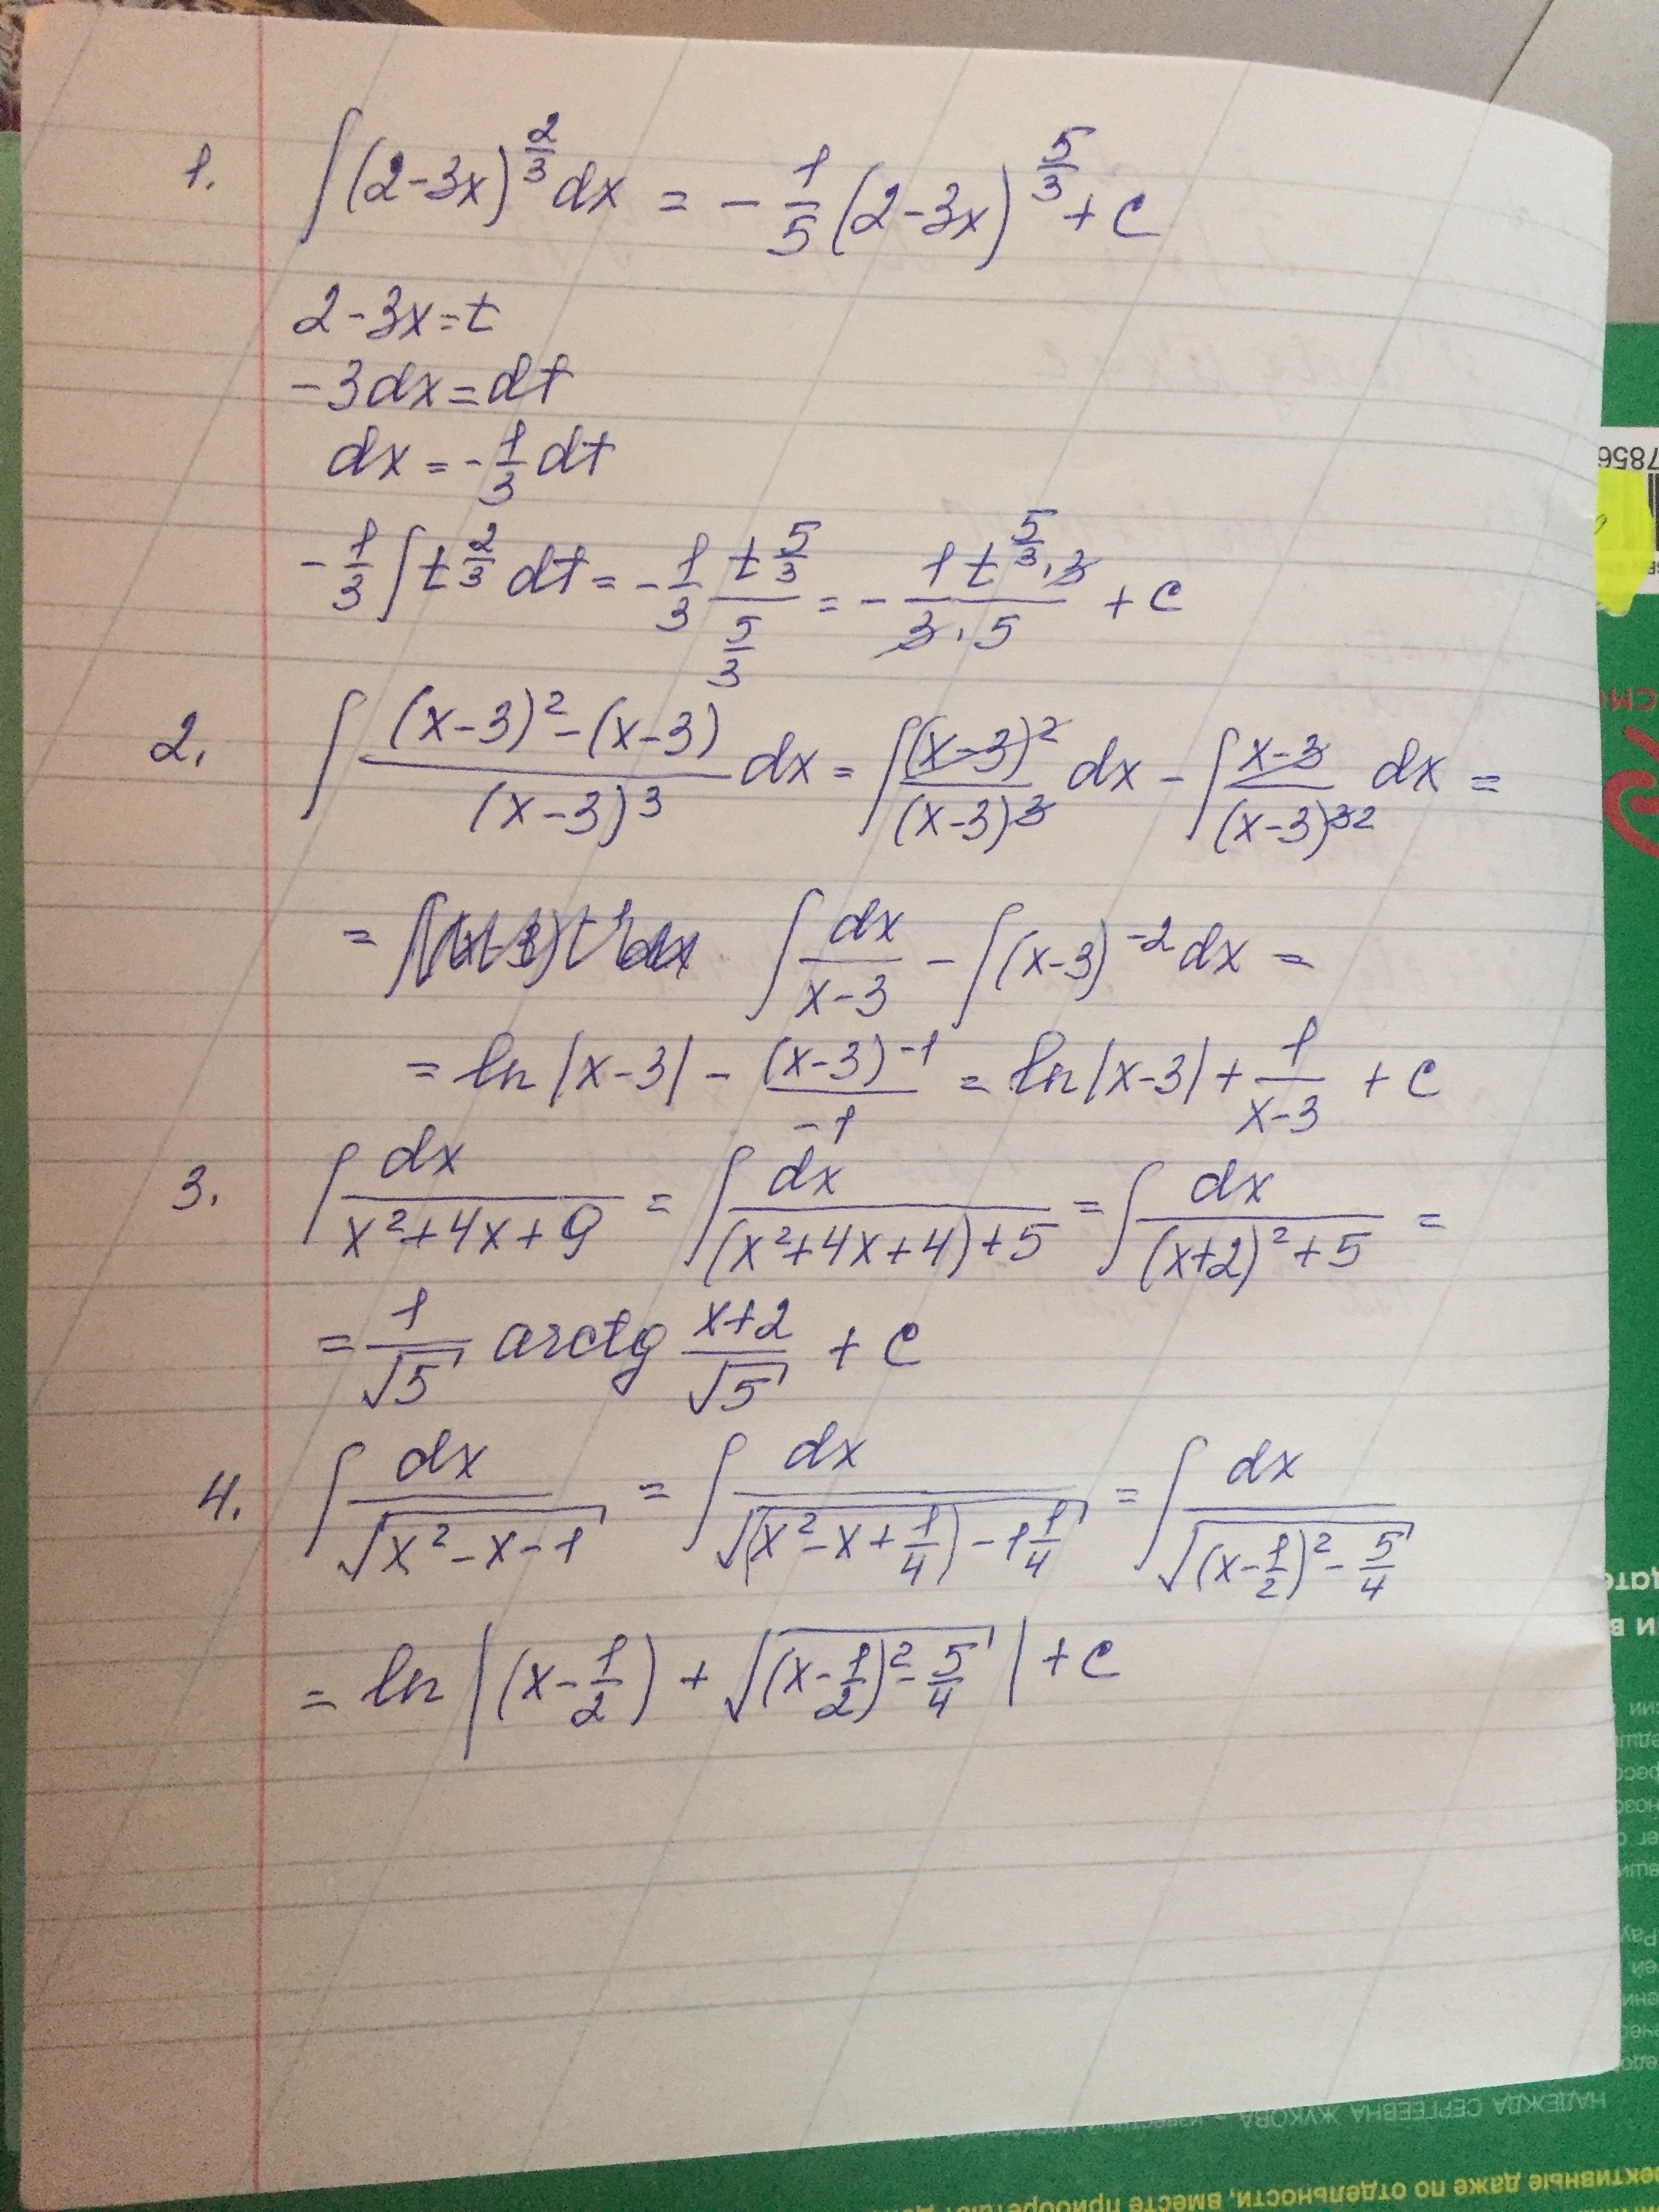 1. ∫(2-3x)^{2/3} dx = -1/5 (2-3x)^{5/3} + C
2-3x=t
-3dx=dt
dx=-1/3 dt
-1/3 ∫t^{2/3} dt = -1/3 t^{5/3}/(5/3) = - (1 t^{5/3}·3)/(3·5) + C
2. ∫ ((x-3)²-(x-3))/(x-3)³ dx = ∫ (x-3)²/(x-3)³ dx - ∫ (x-3)/(x-3)^{3 2} dx =
= ∫ dx/(x-3) - ∫(x-3)^{-2} dx =
= ln|x-3| - (x-3)^{-1}/(-1) = ln|x-3| + 1/(x-3) + C
3. ∫ dx/(x²+4x+9) = ∫ dx/((x²+4x+4)+5) = ∫ dx/((x+2)²+5) =
= 1/√5 arctg (x+2)/√5 + C
4. ∫ dx/√(x²-x-1) = ∫ dx/√((x²-x+1/4)-1 1/4) = ∫ dx/√((x-1/2)²-5/4)
= ln|(x-1/2)+√((x-1/2)²-5/4)| + C
7856
СМ
НАДЕЖДА СЕРГЕЕВНА ЖУКОВА –
даже по отдельности, вместе